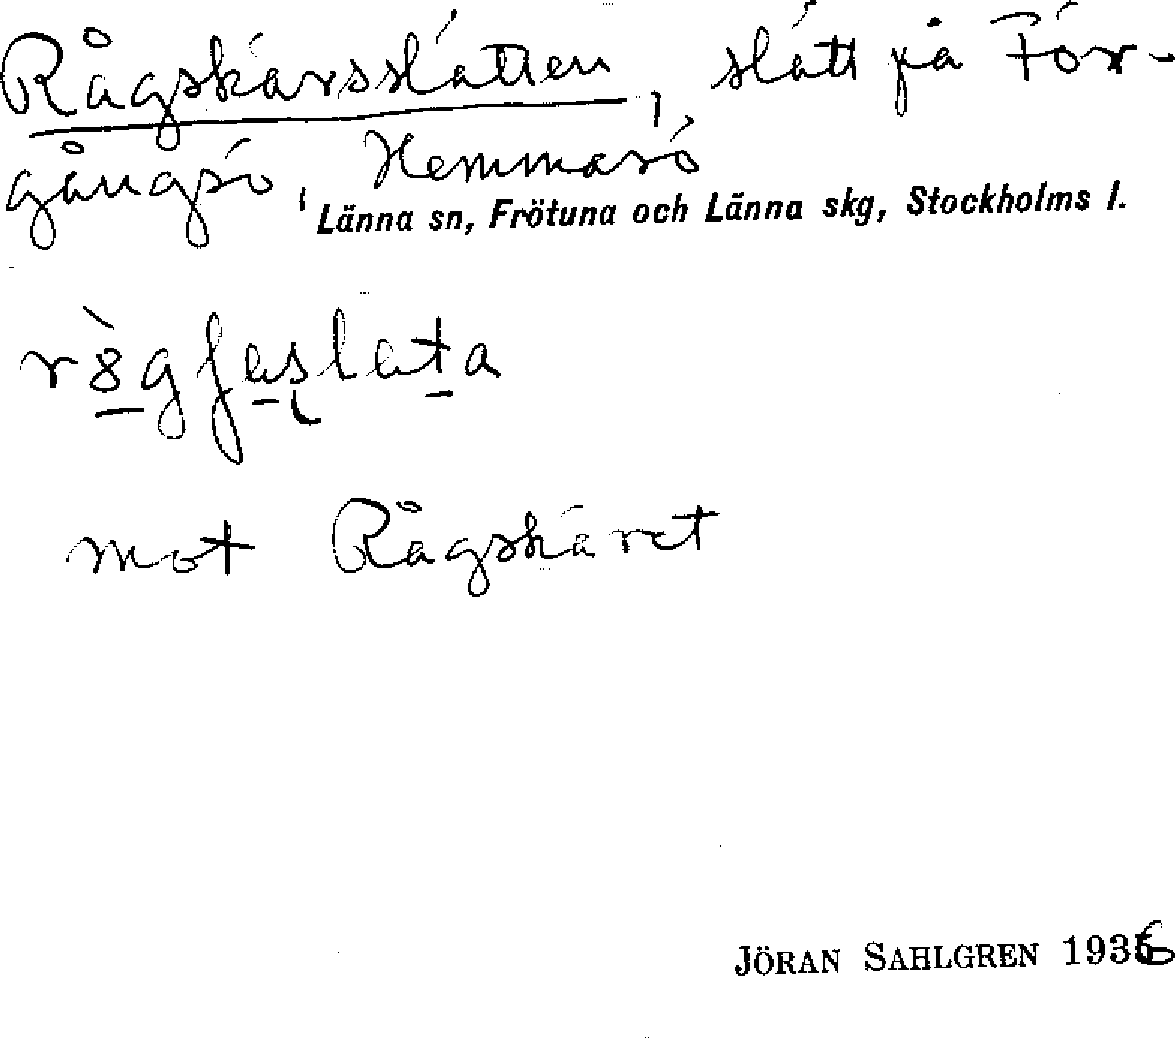 Rågskärsslätten, slätt på För-
gångsö, Hemmarö
Länna sn, Frötuna och Länna skg, Stockholms l.
mot Rågskäret
JÖRAN SAHLGREN 1936